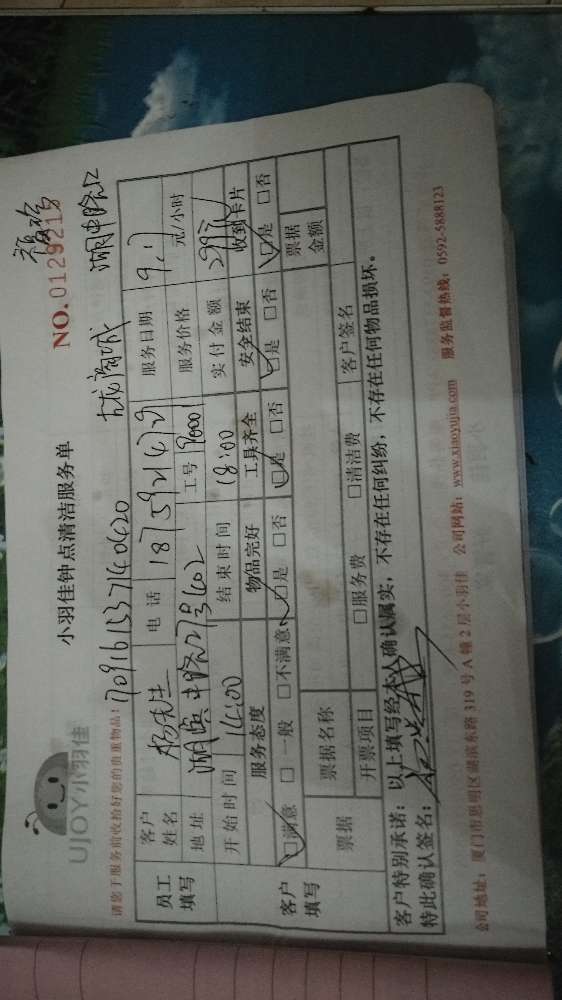 UJOY小羽佳
小羽佳钟点清洁服务单
NO.0129213
请您于服务前收拾好您的贵重物品!
员工填写
客户姓名 杨先生 电话 服务日期 9.17
地址 工号 90001 服务价格 元/小时
开始时间 14:00 结束时间 18:00 实付金额 299元
客户填写
服务态度 物品完好 工具齐全 安全结束 收到卡片
☑满意 □一般 □不满意 ☑是 □否 ☑是 □否 ☑是 □否 ☑是 □否
票据 票据名称 票据金额
开票项目 □服务费 □清洁费 客户签名
客户特别承诺:以上填写经本人确认属实,不存在任何纠纷,不存在任何物品损坏。
特此确认签名:
公司地址:厦门市思明区湖滨东路319号A幢2层小羽佳 公司网站:www.xiaoyujia.com 服务监督热线:0592-5888123